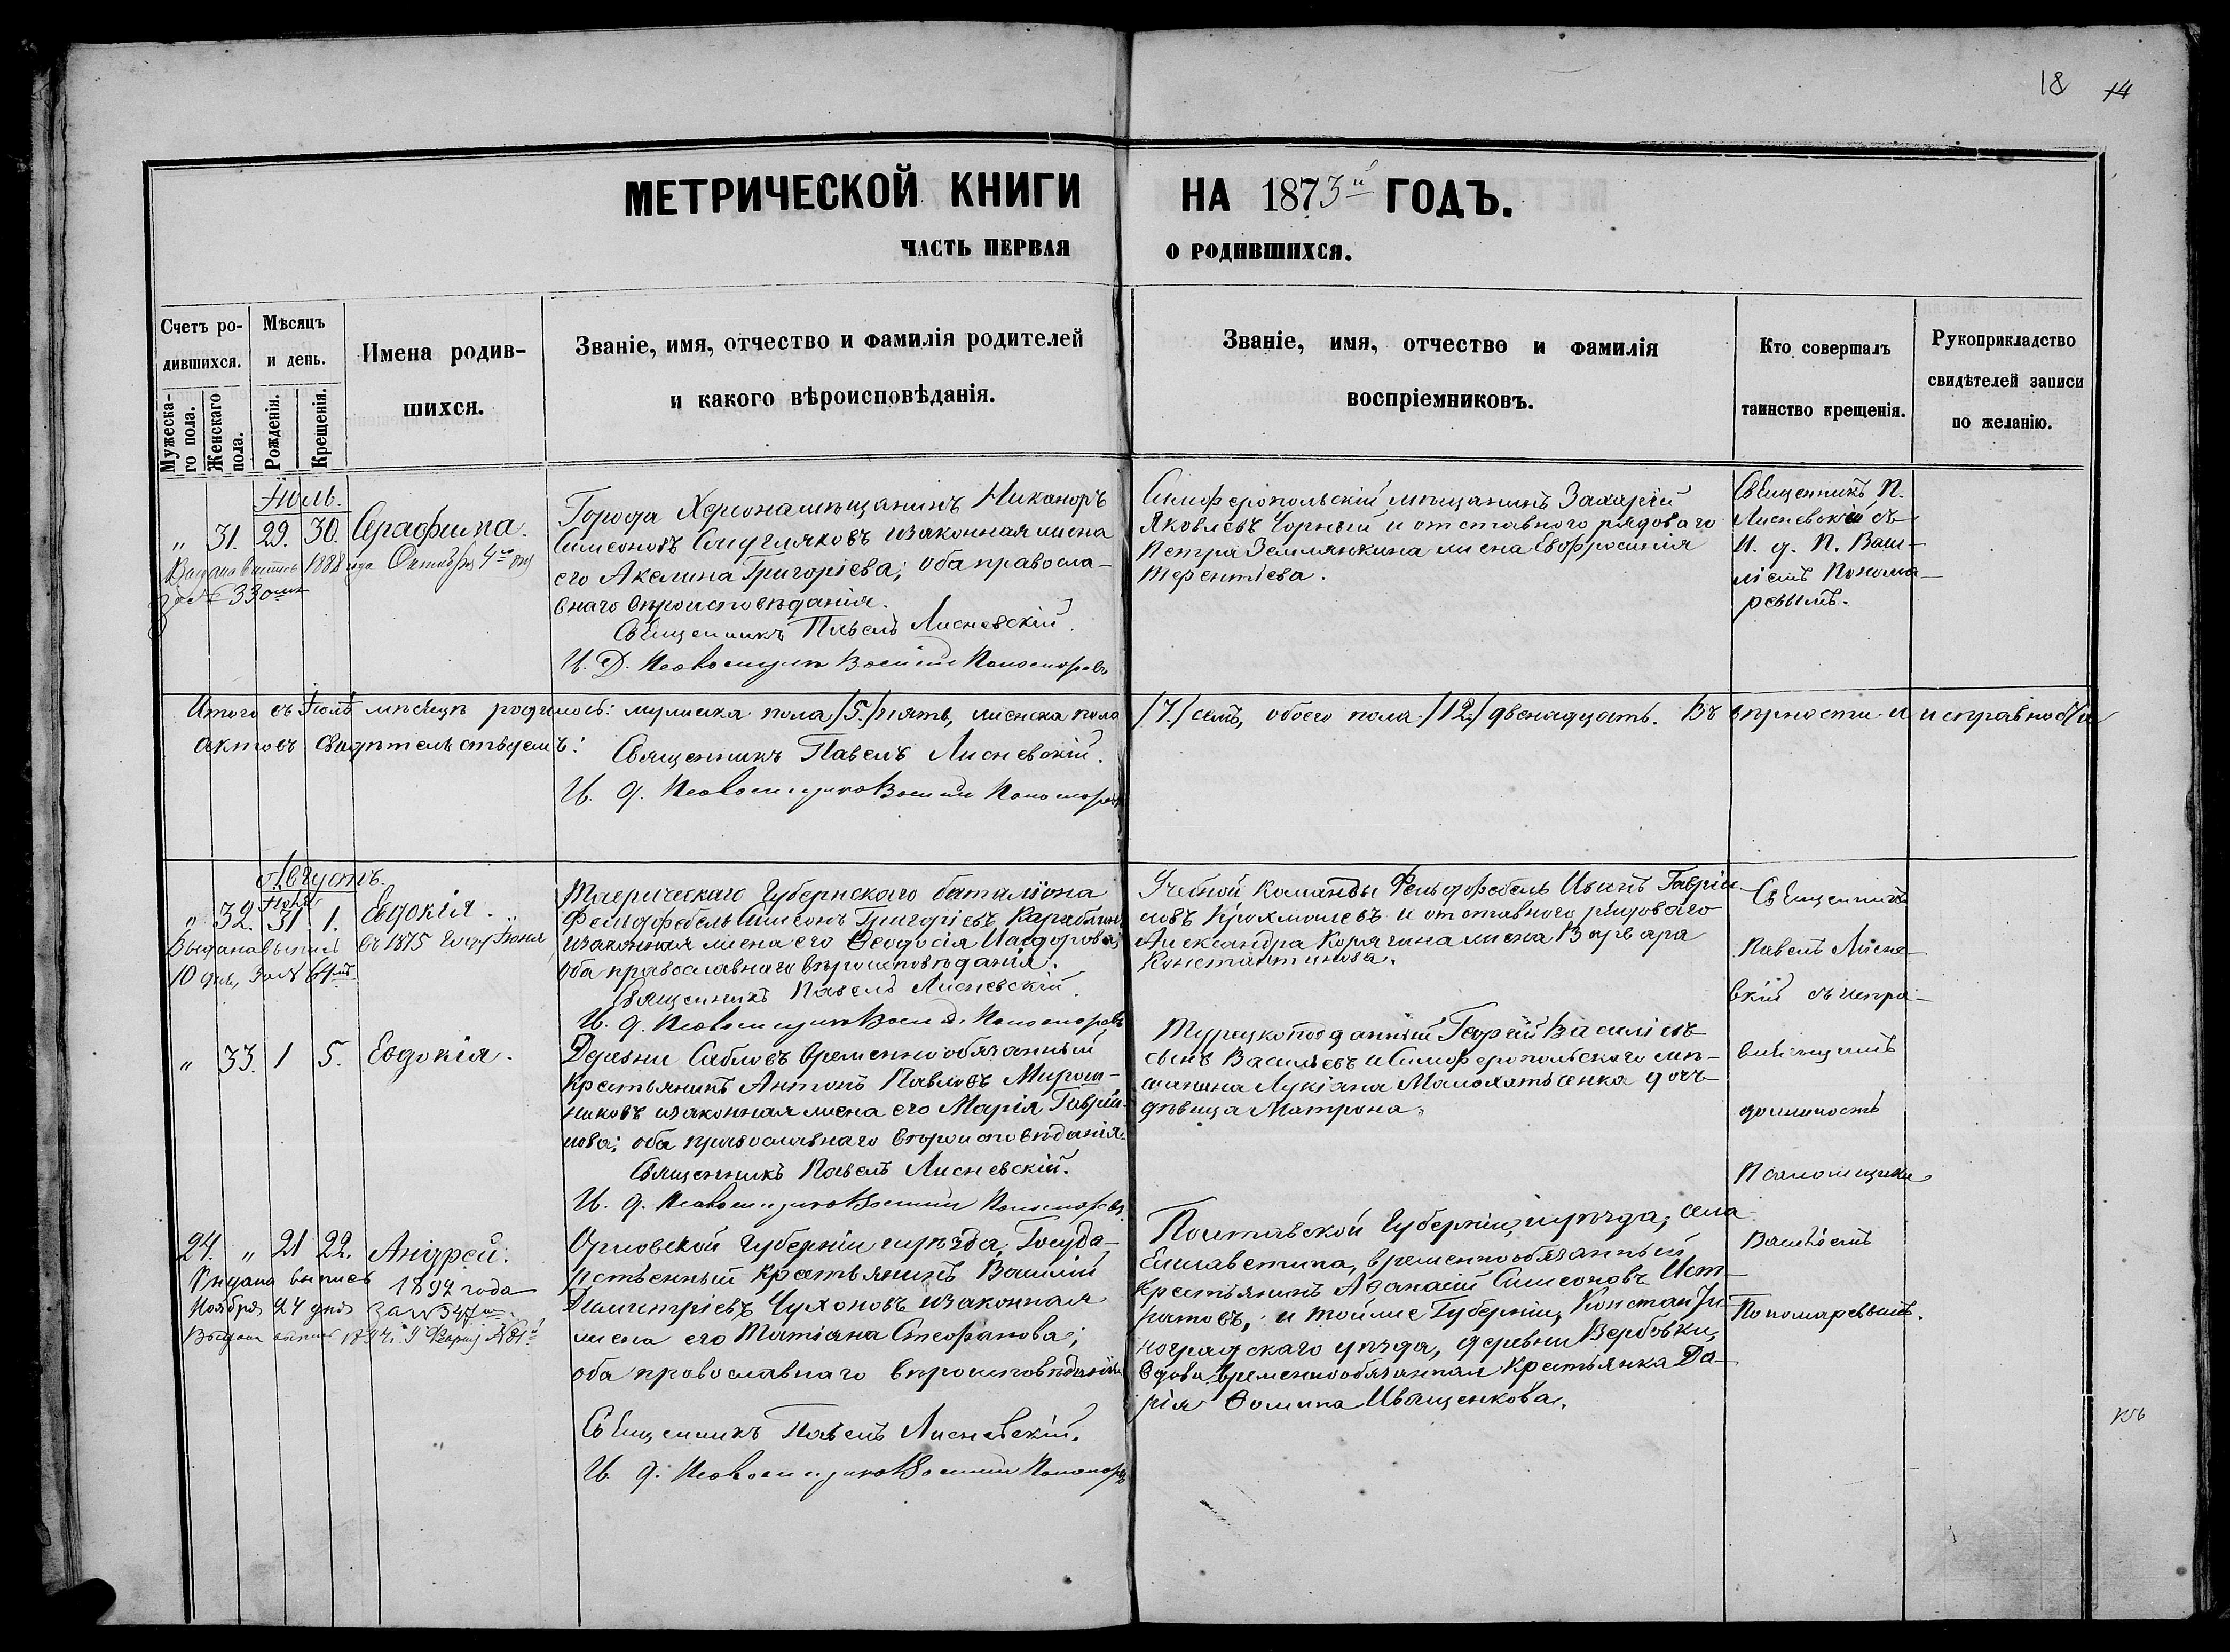 18 14
МЕТРИЧЕСКОЙ КНИГИ НА 1873й ГОДЪ.
ЧАСТЬ ПЕРВАЯ О РОДИВШИХСЯ.
Счетъ ро-
дившихся.
Мужеска-
го пола.
Женскаго
пола.
Мѣсяцъ
и день.
Рожденія.
Крещенія.
Имена родив-
шихся.
Званіе, имя, отчество и фамилія родителей
и какого вѣроисповѣданія.
Званіе, имя, отчество и фамилія
воспріемниковъ.
Кто совершалъ
таинство крещенія.
Рукоприкладство
свидѣтелей записи
по желанію.
Іюль.
„ 31. 29. 30. Серафима.
Выдана выпись 1888 года Октября 4го дня
за № 330
Города Херсона мѣщанинъ Никаноръ
Симеоновъ и законная жена
его Акелина Григоріева; оба правосла-
внаго вѣроисповѣданія.
Священникъ Павелъ Лисневскій.
И. Д. Псаломщика Василій Пономаревъ
Симферопольскій мѣщанинъ Захарій
Яковлевъ Чорный и отставного рядоваго
Петра Землянкина жена Евфросинія
Терентіева.
Священникъ П.
Лисневскій съ
И. д. П. Васи-
ліемъ Понома-
ревымъ.
Итого въ Іюлѣ мѣсяцѣ родилось: мужеска пола /5./ пять, женска пола /7./ семь, обоего пола /12./ двенадцать. Въ вѣрности и исправности
актовъ свидѣтельствуемъ:
Священникъ Павелъ Лисневскій.
И. д. Псаломщика Василій Пономаревъ
Августъ.
Іюля
„ 32. 31 1. Евдокія.
Выдана выпись въ 1875 году Іюня
10 дня, за №
Таврическаго Губернскаго баталіона
Фельдфебель Симеонъ Григоріевъ
и законная жена его Ѳеодосія Исидорова;
оба православнаго вѣроисповѣданія.
Священникъ Павелъ Лисневскій.
И. д. Псаломщика Васил. Пономаревъ
Учебной команды Фельдфебель Иванъ Гаврии-
ловъ Крохмалевъ и отставного рядоваго
Александра Корягина жена Варвара
Константинова.
Священникъ
Павелъ Лисне-
вскій съ испра-
вляющимъ
должность
Псаломщика
Василіемъ
Пономаревымъ.
„ 33. 1 5. Евдокія.
Деревни Сабловъ временнообязанный
крестьянинъ Антонъ Павловъ Мирош-
никовъ и законная жена его Марія Гаврии-
лова; оба православнаго вѣроисповѣданія.
Священникъ Павелъ Лисневскій.
И. д. Псаломщика Василій Пономаревъ
Турецкоподданный Георгій Василіевъ
сынъ Васильевъ и Симферопольскаго мѣ-
щанина Лукіана Малохатченка дочь
дѣвица Матрона.
24. „ 21 22. Андрей.
Выдана выпись 1892 года
Ноября 24 дня за № 347
Выдана выпись № 81
Орловской Губерніи и уѣзда, Госуда-
рственный крестьянинъ Василій
Димитріевъ Чухоновъ и законная
жена его Татіана Стефанова;
оба православнаго вѣроисповѣданія
Священникъ Павелъ Лисневскій.
И. д. Псаломщика Василій Пономаревъ
Полтавской Губерніи, и уѣзда, села
Елисаветина, временнообязанный
крестьянинъ Аѳанасій Симеоновъ Ист-
ратовъ, и тойже Губерніи, Константи-
ноградскаго уѣзда, деревни Вербовки,
вдова временнообязанная крестьянка Да-
рія Ѳомина Иващенкова.